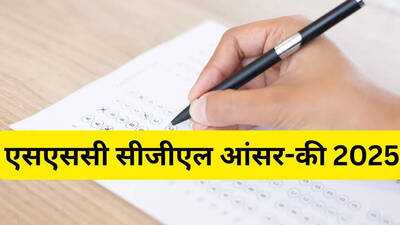 एसएससी सीजीएल आंसर-की 2025